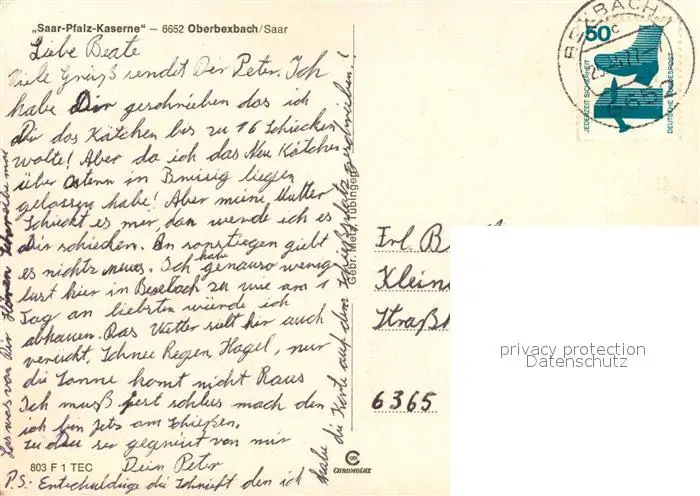 „Saar-Pfalz-Kaserne“ - 6652 Oberbexbach/Saar
Liebe Beate
Viele Grüß sendet Der Peter. Ich
habe Dir geschrieben das ich
Dir das Kätchen bis zu 16 Schicken
wolte! Aber da ich das Neu Kätchen
über Ostern in liegen
gelassen habe! Aber meine Mutter
Schickt es mir, dan werde ich es
Dir schicken. An sonstiegen giebt
es nichts neues. Ich habe genauso wenig
lust hier in Bexbach zu wie am 1
Tag an liebsten würde ich
abhauen. Das Wetter sielt hir auch
verückt. Schnee Regen Hagel, nur
die Sonne komt nicht Raus
Ich muß jest schlus mach den
ich bin jets am Schießen.
sei gegrüst von mir
Dein Peter
P.S: Entschuldige die Schrieft den ich
habe die Karte auf dem Schießplatz geschrieben!
Las was von Dir Hören
803 F 1 TEC
Gebr. Metz, Tübingen
CHROMOLUX
50
JEDERZEIT SICHERHEIT
DEUTSCHE BUNDESPOST
BEXBACH
6652
Frl B
Klein
Straß
6365
privacy protection
Datenschutz